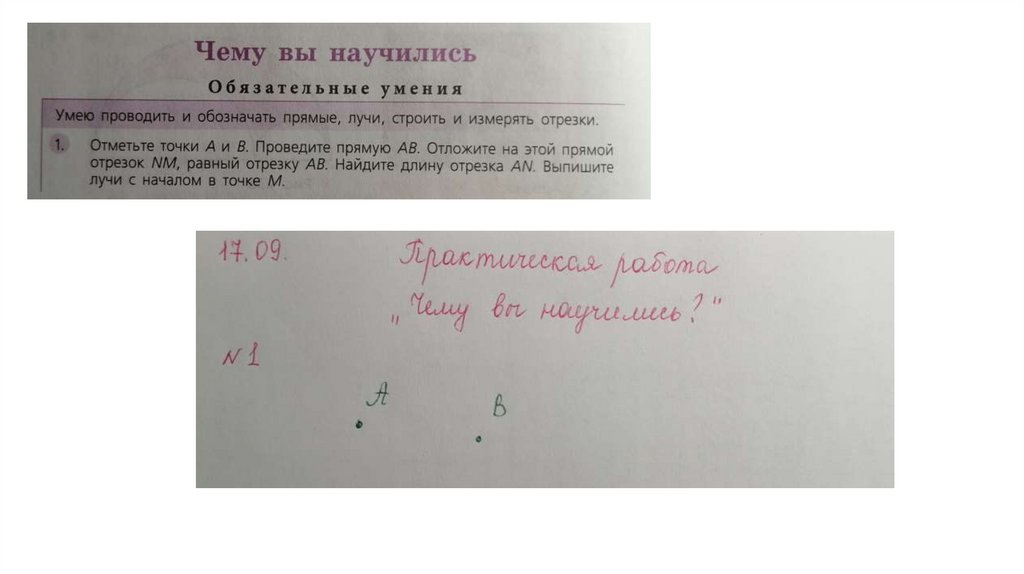 Чему вы научились
Обязательные умения
Умею проводить и обозначать прямые, лучи, строить и измерять отрезки.
1. Отметьте точки A и B. Проведите прямую AB. Отложите на этой прямой
отрезок NM, равный отрезку AB. Найдите длину отрезка AN. Выпишите
лучи с началом в точке M.
17.09. Практическая работа
„Чему вы научились?"
N1
A
B